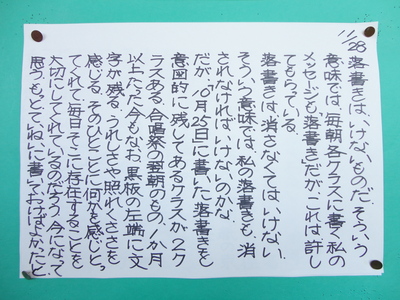 11/28
落書きは、いけないものだ。そういう
意味では、毎朝各クラスに書く私の
メッセージも"落書き"だが、これは許し
てもらっている。
落書きは、消さなくてはいけない。
そういう意味では、私の落書きも、消
されなければ、いけないのかな。
だが、"10月25日"に書いた"落書き"を
意図的に残してあるクラスが2ク
ラスある。合唱祭の翌朝のもの。1か月
以上たった今もなお、黒板の左端に文
字が残る。うれしさや照れくささを
感じる。そのひとことに何かを感じとっ
てくれて毎日そこに存在することを
大切にしてくれているのだろう。今になって
思う。もっとていねいに書いておけばよかったと。